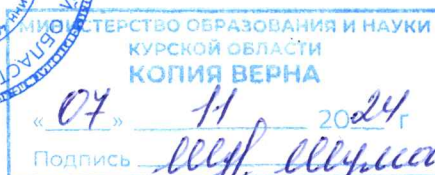 МИНИСТЕРСТВО ОБРАЗОВАНИЯ И НАУКИ
КУРСКОЙ ОБЛАСТИ
КОПИЯ ВЕРНА
«07» 11 2024 г
Подпись